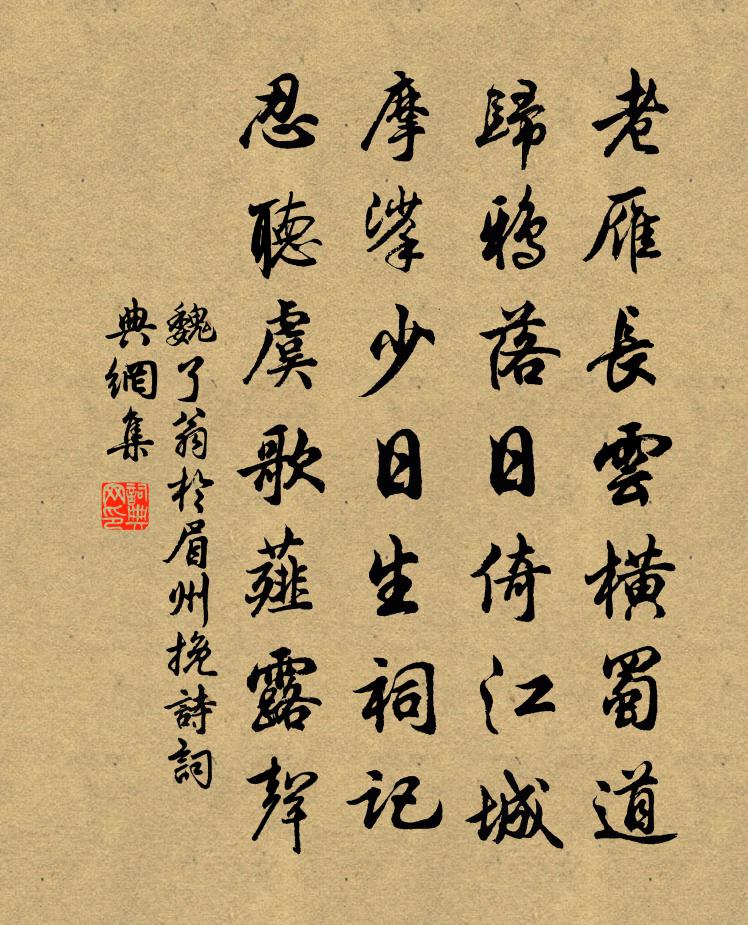 老雁長雲橫蜀道
歸鴉落日倚江城
摩挲少日生祠記
忍聽虞歌薤露聲
魏了翁於眉州挽詩詞
典網集
詞典
网印